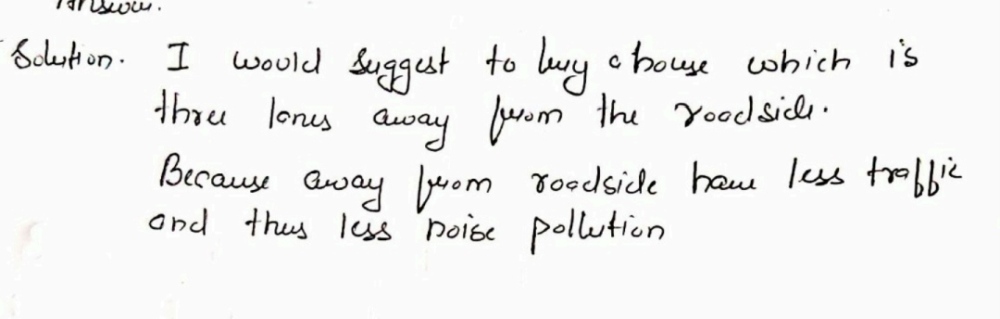 Answer.
Solution. I would suggest to buy a house which is
three lanes away from the roadside.
Because away from roadside have less traffic
and thus less noise pollution